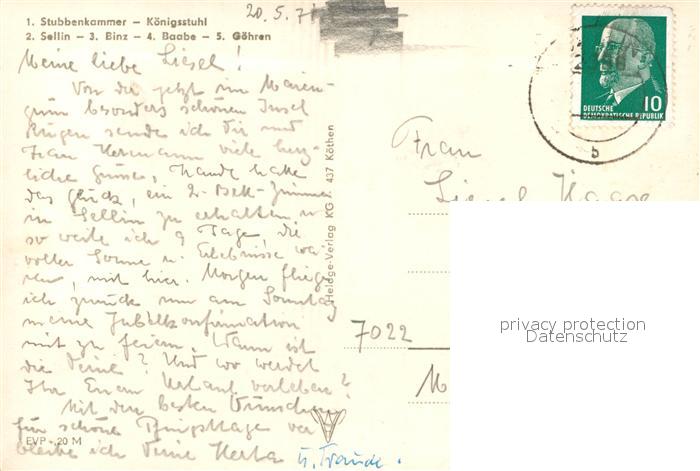 1. Stubbenkammer – Königsstuhl
2. Sellin – 3. Binz – 4. Baabe – 5. Göhren
20.5.71
Meine liebe Liesel!
Von der jetzt im Maien-
grün besonders schönen Insel
Rügen sende ich Dir und
Frau Hermann viele herz-
liche Grüsse, Traude hatte
das Glück, ein 2-Bett-Zimmer
in Sellin zu erhalten u.
so weile ich 9 Tage, die
voller Sonne u. Erlebnisse wa-
ren, mit hier. Morgen fliege
ich zurück um am Sonntag
meine Jubelkonfirmation
mit zu feiern. Wann ist
die Deine? Und wo werdet
Ihr Euern Urlaub verleben?
Mit den besten Wünschen
für schöne Pfingsttage ver
bleibe ich Deine Herta u. Traude.
EVP -.20 M
Heldge-Verlag KG 437 Köthen
DEUTSCHE
DEMOKRATISCHE REPUBLIK
10
b
Frau
Liesel Haase
7022
privacy protection
Datenschutz